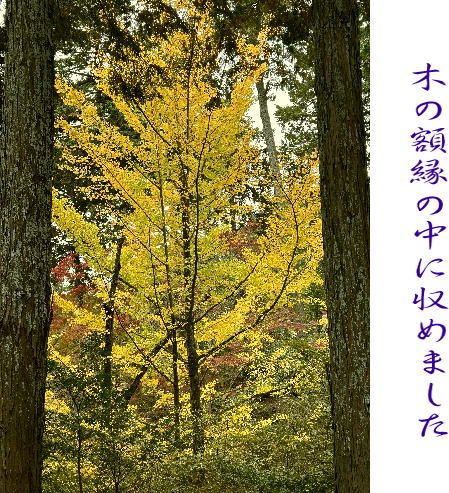 木の額縁の中に収めました